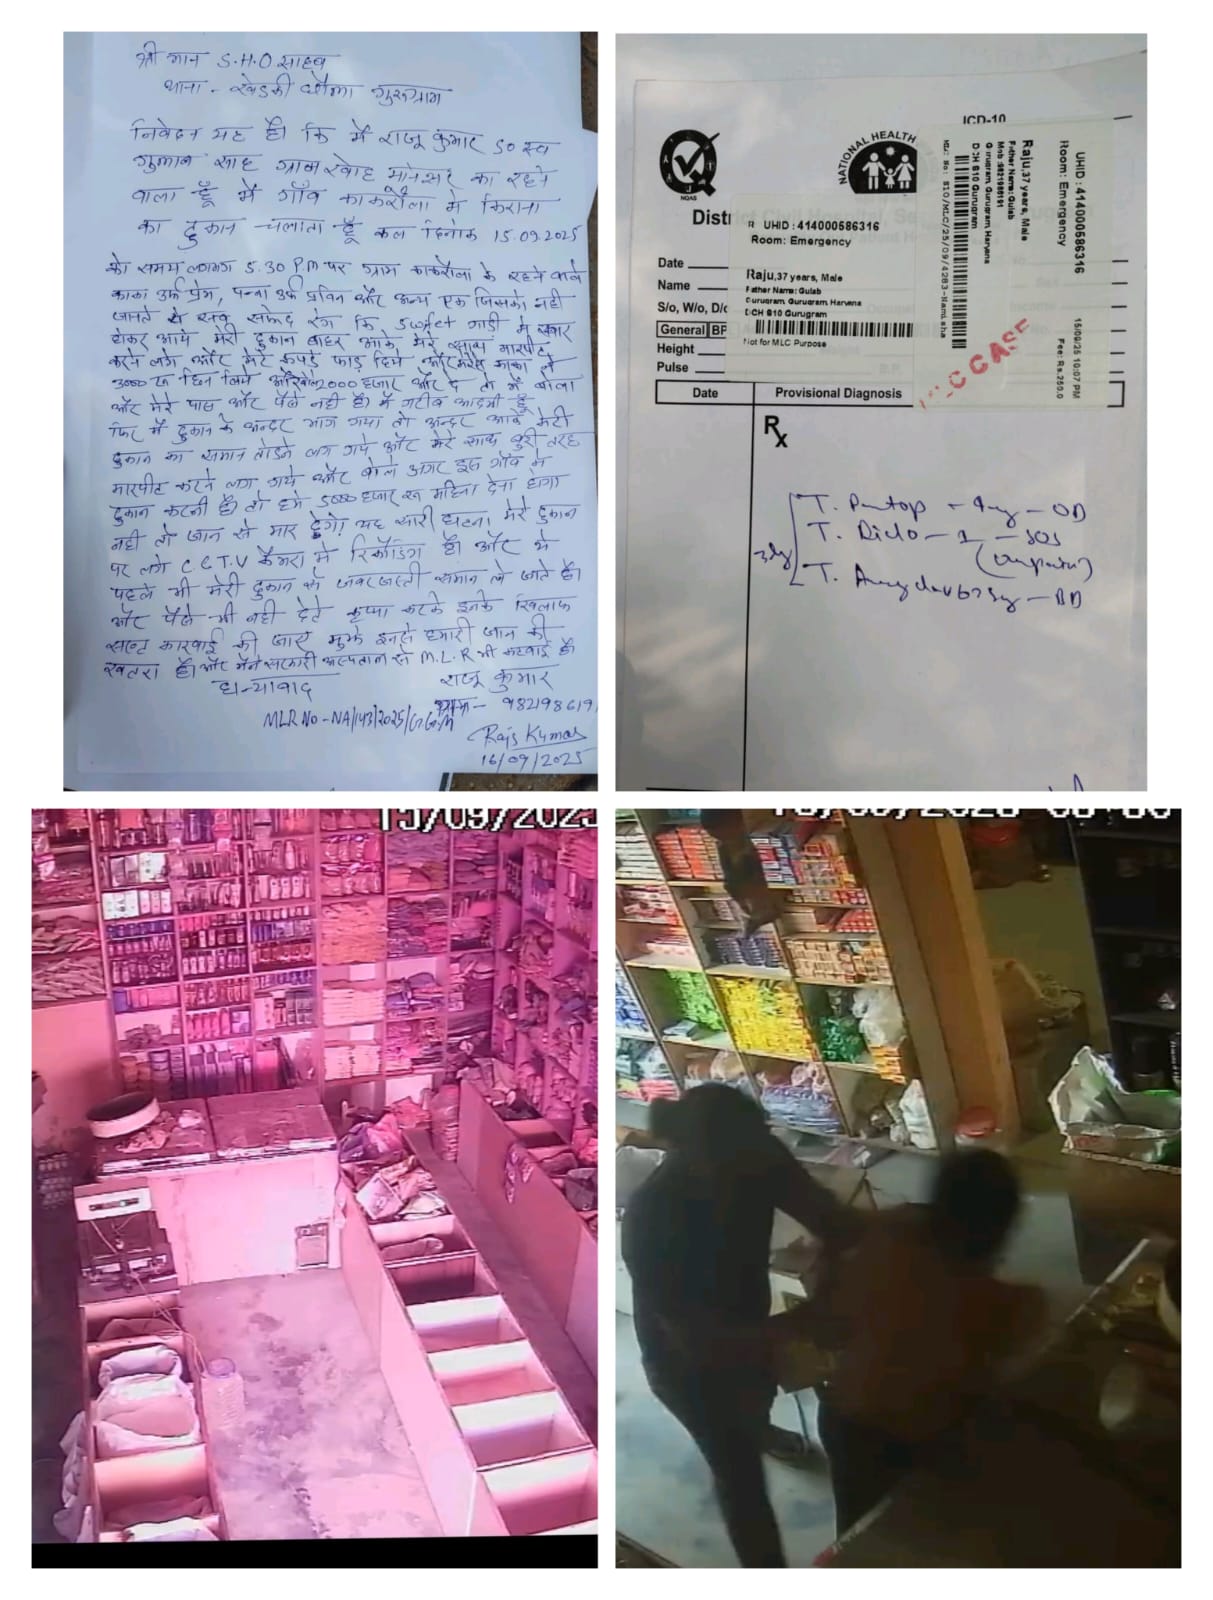 श्री मान S.H.O साहब
थाना - खेडकी दौला गुरुग्राम
निवेदन यह है। कि मैं राजु कुमार SO स्व
गुलाब साह ग्राम खोह मानेसर का रहने
वाला हूँ मैं गाँव काकरौला मे किराना
का दुकान चलाता हूँ कल दिनांक 15.09.2025
को समय लगभग 5.30 P.M पर ग्राम काकरौला के रहने वाले
काका उर्फ प्रेम, पन्ना उर्फ प्रविन और अन्य एक जिसको नही
जानते ये सब सफेद रंग कि Swift गाडी मे सवार
होकर आये मेरी दुकान बाहर आके मेरे साथ मारपीट
करने लगे और मेरे कपडे फाड़ दिये और
3000 रु छिन लिये और बोले 2000 हजार और दे तो मैं बोला
और मेरे पास और पैसे नही है। मैं गरीब आदमी हूँ
फिर मैं दुकान के अन्दर भाग गया तो अन्दर आके मेरी
दुकान का समान तोडने लग गये और मेरे साथ बुरी तरह
मारपीट करने लग गये और बोले अगर इस गाँव मे
दुकान करनी है। तो हमे 5000 हजार रू महिना देना होगा
नही तो जान से मार देगे। यह सारी घटना मेरे दुकान
पर लगे C C T.V कैमरा मे रिकॉडिंग है। और ये
पहले भी मेरी दुकान से जबरजस्ती समान ले जाते है।
और पैसे भी नही देते कृप्पा करके इनके खिलाफ
सख्ट कारवाई की जाए मुझे इनसे हमारी जान की
खतरा है। और मैने सरकारी अस्पताल से M.L.R भी करवाई है
धन्यावाद
राजू कुमार
MLR No - NA/143/2025/
982198619
Rajs Kumar
16/09/2025
ICD-10
NQAS
NATIONAL HEALTH
UHID : 414000586316
Room: Emergency
Raju,37 years, Male
Father Name: Gulab
Gurugram, Gurugram, Haryana
DCH S10 Gurugram
Not for MLC Purpose
UHID : 414000586316
Room: Emergency
15/09/25 10:07 PM
Fee: Rs.250.0
Raju,37 years, Male
Father Name: Gulab
Mob :9821986191
Gurugram, Gurugram, Haryana
DCH S10 Gurugram
MLC No: S10/MLC/25/09/4283-Namisha
MLC CASE
Date
Name
S/o, W/o, D/o
General BP
Height
Pulse
Date Provisional Diagnosis
Rx
T. Pantop - 4mg - OD
T. Diclo - 1 - SOS
T. - BD
15/09/2025